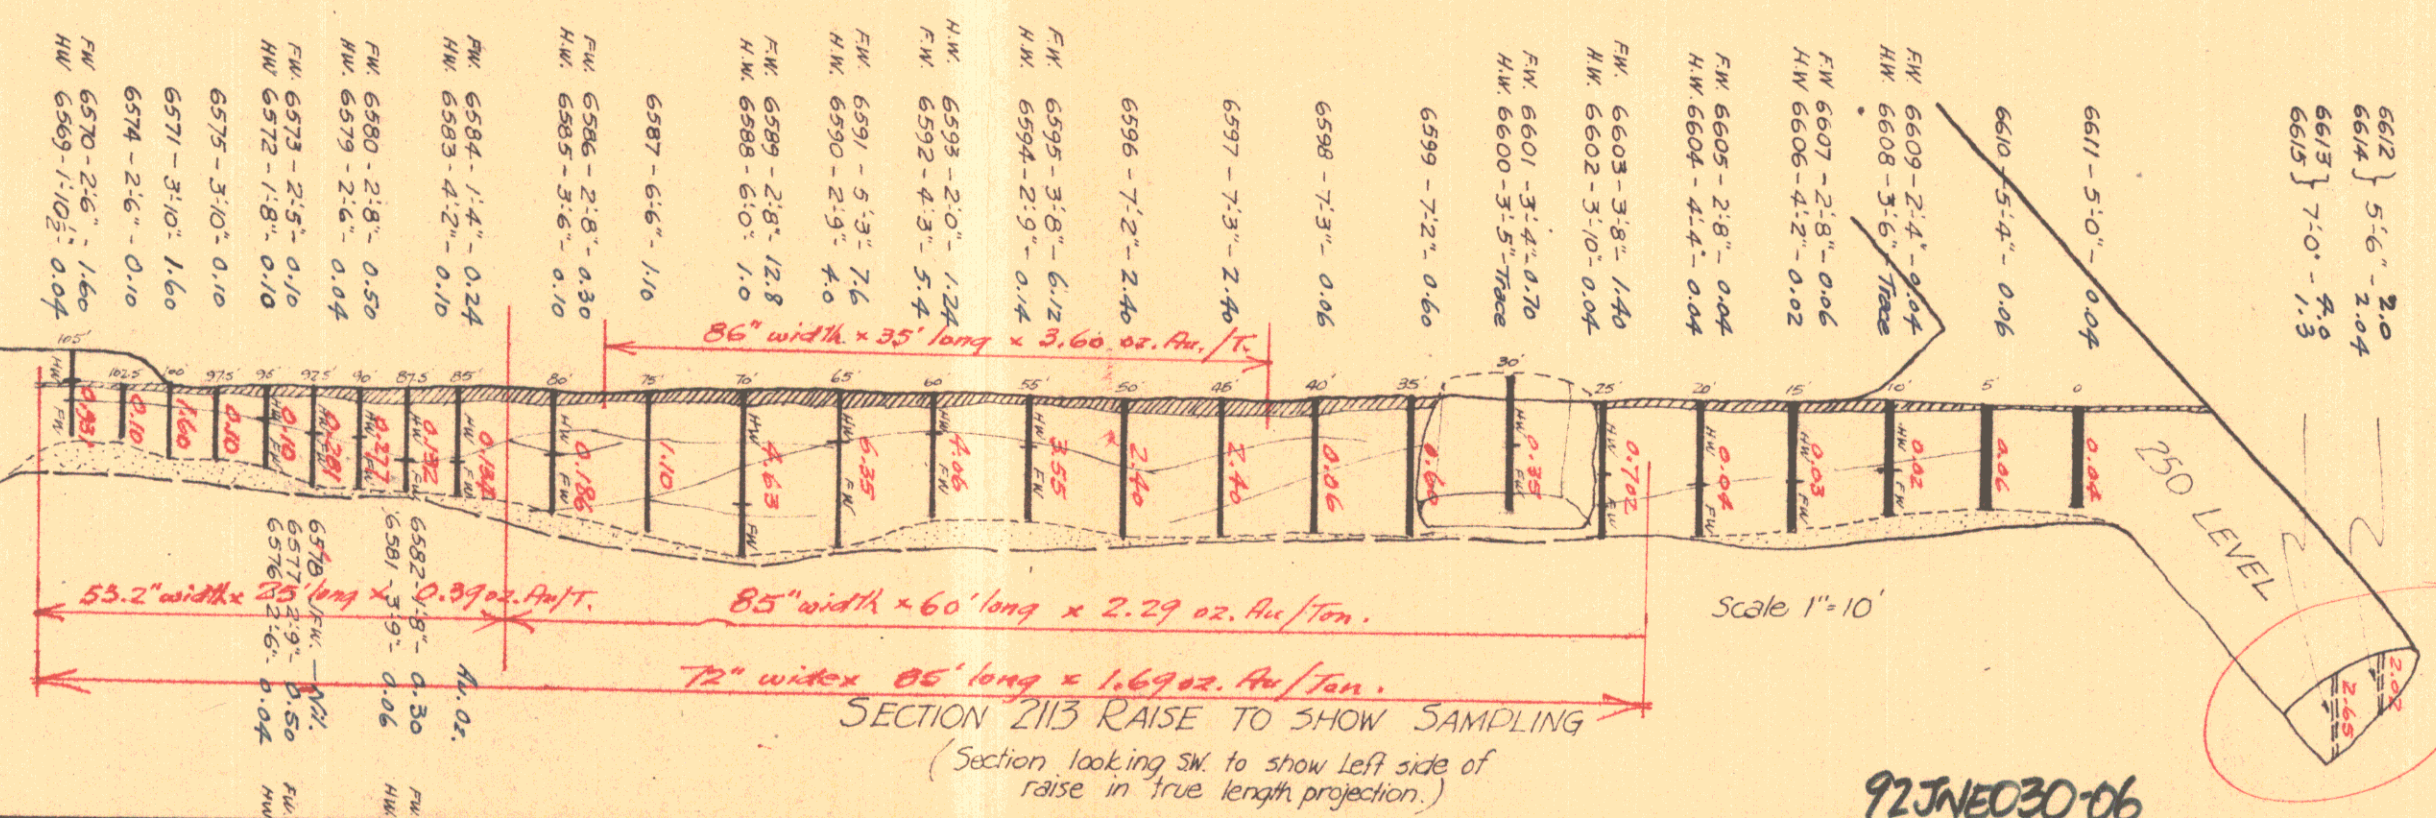 FW 6570-2'6"- 1.60
HW 6569-1'10½"- 0.04
6574-2'6"-0.10
6571-3'10"- 1.60
6575-3'10"-0.10
FW. 6573-2'5"-0.10
HW 6572-1'8"-0.10
FW. 6580-2'8"- 0.50
HW. 6579-2'6"- 0.04
FW. 6584-1'4"-0.24
HW. 6583-4'2"-0.10
FW. 6586-2'8"-0.30
H.W. 6585-3'6"-0.10
6587-6'6"-1.10
F.W. 6589-2'8"-12.8
H.W. 6588-6'0"- 1.0
F.W. 6591-5'3"- 7.6
H.W. 6590-2'9"- 4.0
H.W. 6593-2'0"-1.24
F.W. 6592-4'3"-5.4
F.W. 6595-3'8"-6.12
H.W. 6594-2'9"-0.14
6596-7'2"-2.40
6597-7'3"-2.40
6598-7'3"-0.06
6599-7'2"-0.60
F.W. 6601-3'4"-0.70
H.W. 6600-3'5"-Trace
F.W. 6603-3'8"-1.40
H.W. 6602-3'10"-0.04
F.W. 6605-2'8"-0.04
H.W. 6604-4'4"-0.04
F.W 6607-2'8"-0.06
H.W 6606-4'2"-0.02
F.W 6609-2'4"-0.04
H.W. 6608-3'6"-Trace
6610-5'4"- 0.06
6611-5'0"- 0.04
6612 } 5'6" - 2.0
6614 } 2.04
6613 } 7'0" - 4.0
6615 } 1.3
86" width x 35' long x 3.60 oz. Au./T.
105' 102.5' 100' 97.5' 95' 92.5' 90' 87.5' 85' 80' 75' 70' 65' 60' 55' 50' 45' 40' 35' 30' 25' 20' 15' 10' 5' 0
HW FW 0.931
0.10
1.60
0.10
HW FW 0.10
HW FW 0.281
HW FW 0.277
HW FW 0.132
HW FW 0.134
HW FW 0.186
1.10
HW FW 4.63
HW FW 6.35
HW FW 4.06
HW FW 3.55
2.40
2.40
0.06
0.60
HW FW 0.35
HW FW 0.702
HW FW 0.04
HW FW 0.03
HW FW 0.02
0.06
0.04
250 LEVEL
2.02
2.65
53.2" width x 25' long x 0.39 oz. Au/T.
85" width x 60' long x 2.29 oz. Au/Ton.
72" wide x 85' long x 1.69 oz. Au/Ton.
Scale 1"=10'
Au. Oz.
6582-1'8"- 0.30 FW
6581-3'9"- 0.06 HW
6578 FW. - Nil.
6577-2'9"- 0.50 FW.
6576-2'6"- 0.04 HW
SECTION 2113 RAISE TO SHOW SAMPLING
(Section looking S.W. to show Left side of
raise in true length projection.)
92JNE030-06